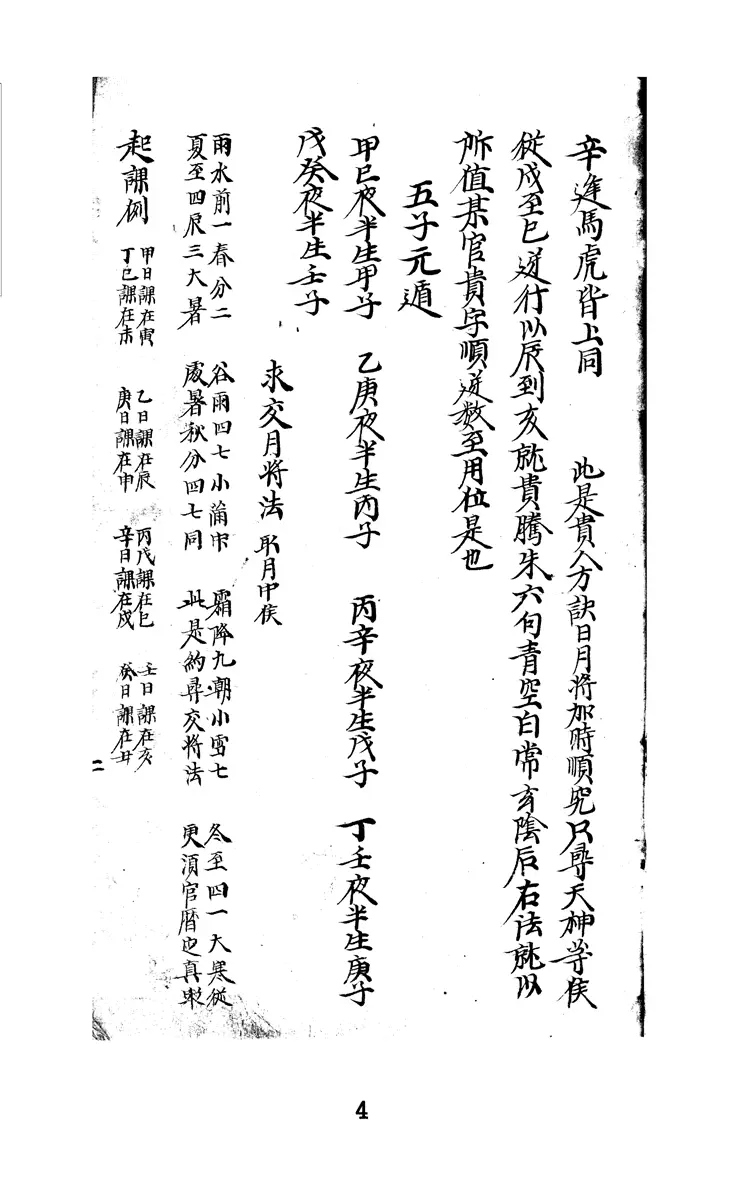 辛逢馬虎皆上同　此是貴人方訣日月將加時順究只尋天神等侯
從戌至巳逆行以辰到亥就貴騰朱六句青空白常玄陰后右法就以
所值某官貴字順逆数至用位是也
五子元遁
甲巳夜半生甲子　乙庚夜半生丙子　丙辛夜半生戊子　丁壬夜半生庚子
戊癸夜半生壬子
求交月將法　取月中侯
雨水前一春分二　谷雨四七小滿　霜降九朝小雪七　冬至四一大寒從
夏至四辰三大暑　處暑秋分四七同　此是約尋交將法　更須官曆也真
起課例
甲日課在寅　乙日課在辰　丙戊課在巳　壬日課在亥
丁巳課在未　庚日課在申　辛日課在戌　癸日課在丑
二
4